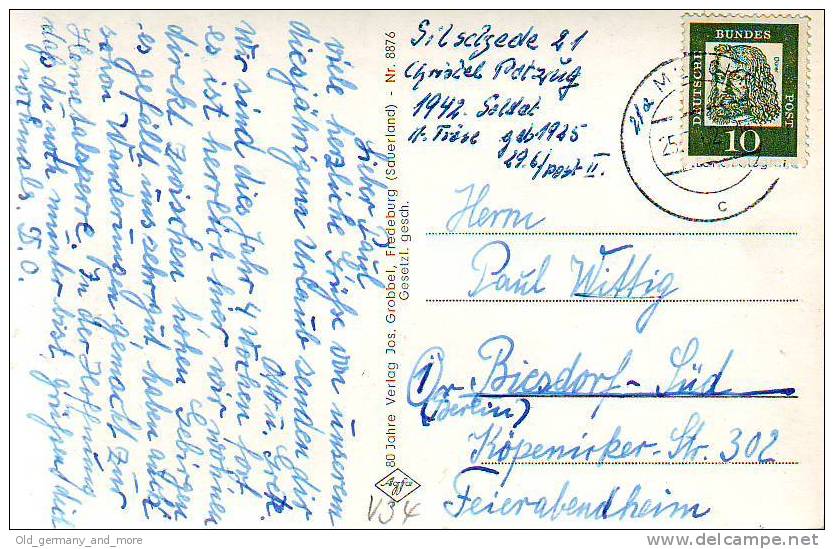 Lieber Paul
viele herzliche Grüße von unserem
diesjährigen Urlaub senden dir
Otto u. Grete.
Wir sind dies Jahr 4 Wochen fort
es ist herrlich hier wir wohnen
direkt zwischen hohen Gebirgen
es gefällt uns sehr gut haben auch
schon Wanderungen gemacht zur
Hennetalsperre. In der Hoffnung
daß du noch munter bist grüßen dich
nochmals. D. O.
80 Jahre Verlag Jos. Grobbel, Fredeburg (Sauerland) - Nr. 8876
Gesetzl. gesch.
Agfa
V34
Silschede 21
1942. Soldat
geb 1925
29.6/ post II.
DEUTSCHE BUNDES POST
Dürer
10
c
Herrn
Paul Wittig
Biesdorf-Süd
(Berlin)
Köpenicker-Str. 302
Feierabendheim
Old_germany_and_more
delcampe.net